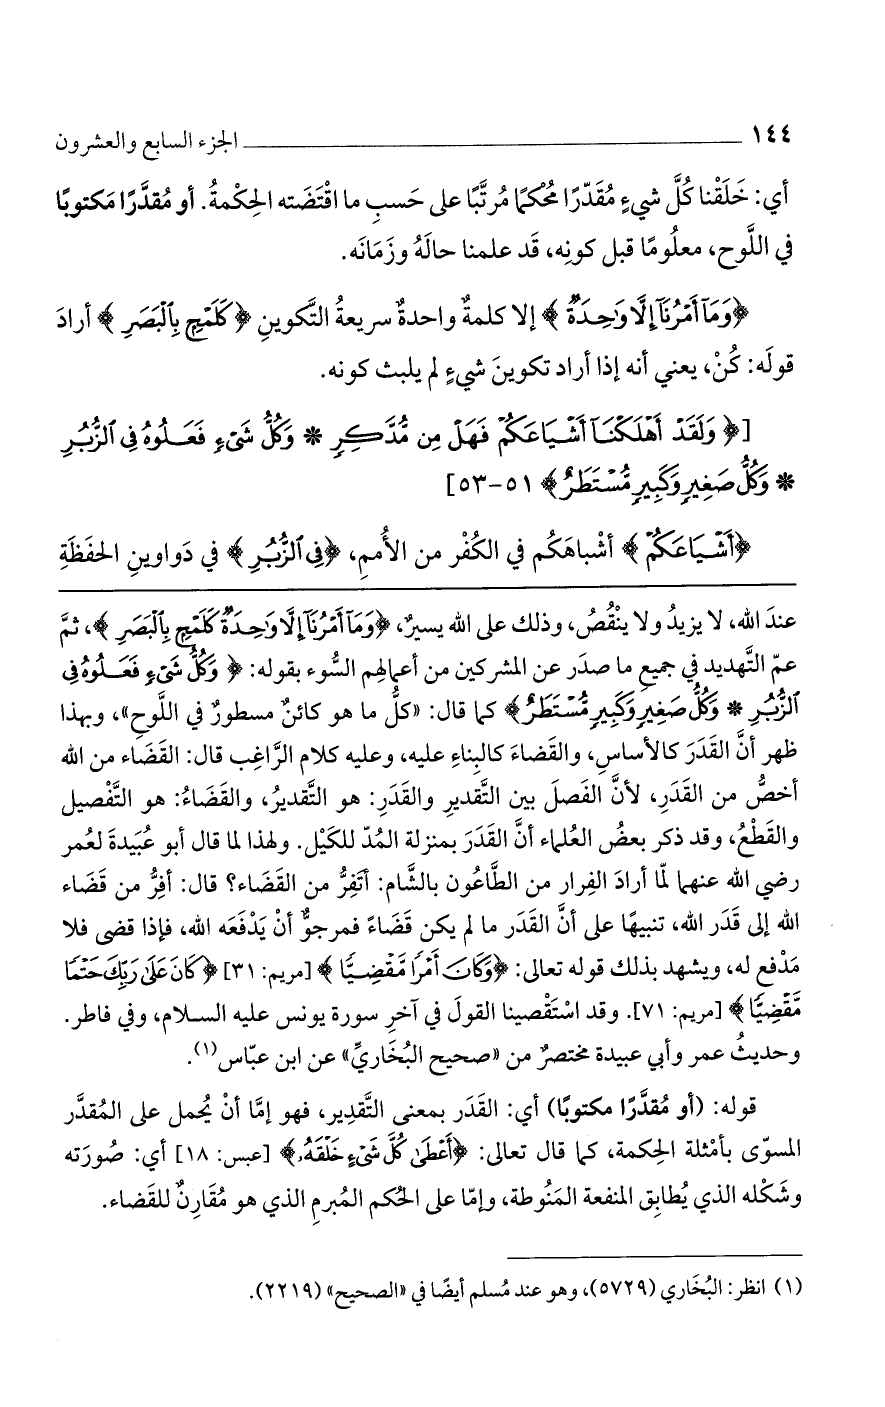 ١٤٤ الجزء السابع والعشرون
أي: خَلَقْنا كُلَّ شيءٍ مُقَدّرًا مُحْكمًا مُرتَّبًا على حَسبِ ما اقْتَضَته الحِكْمةُ. أو مُقدَّرًا مَكتوبًا
في اللَّوح، معلُومًا قبل كونِه، قَد علمنا حالَهُ وزَمَانَه.
﴿وَمَآ أَمْرُنَآ إِلَّا وَٰحِدَةٌ﴾ إلا كلمةٌ واحدةٌ سريعةُ التَّكوينِ ﴿كَلَمْحٍۭ بِٱلْبَصَرِ﴾ أرادَ
قولَه: كُنْ، يعني أنه إذا أراد تكوينَ شيءٍ لم يلبث كونه.
[﴿وَلَقَدْ أَهْلَكْنَآ أَشْيَاعَكُمْ فَهَلْ مِن مُّدَّكِرٍ * وَكُلُّ شَىْءٍ فَعَلُوهُ فِى ٱلزُّبُرِ
* وَكُلُّ صَغِيرٍ وَكَبِيرٍ مُّسْتَطَرٌ﴾ ٥١-٥٣]
﴿أَشْيَاعَكُمْ﴾ أشْباهَكُم في الكُفْر من الأُممِ، ﴿فِى ٱلزُّبُرِ﴾ في دَواوينِ الحفَظَةِ
عندَ الله، لا يزيدُ ولا ينْقُصُ، وذلك على الله يسيرٌ، ﴿وَمَآ أَمْرُنَآ إِلَّا وَٰحِدَةٌ كَلَمْحٍۭ بِٱلْبَصَرِ﴾، ثمَّ
عمّ التَّهديد في جميع ما صدَر عن المشركين من أعمالِهم السُّوء بقوله: ﴿وَكُلُّ شَىْءٍ فَعَلُوهُ فِى
ٱلزُّبُرِ * وَكُلُّ صَغِيرٍ وَكَبِيرٍ مُّسْتَطَرٌ﴾ كما قال: «كلُّ ما هو كائنٌ مسطورٌ في اللَّوحِ»، وبهذا
ظهر أنَّ القَدَر كالأساسِ، والقَضاءَ كالبِناءِ عليه، وعليه كلام الرَّاغِب قال: القَضَاء من الله
أخصُّ من القَدَرِ، لأنَّ الفَصلَ بين التَّقديرِ والقَدَرِ: هو التَّقديرُ، والقَضَاءُ: هو التَّفْصيل
والقَطْعُ، وقد ذكر بعضُ العُلماء أنَّ القَدَرَ بمنزلة المُدّ للكَيْل. ولهذا لما قال أبو عُبَيدةَ لعُمر
رضي الله عنهما لمّا أرادَ الفِرار من الطَّاعُون بالشَّام: أتَفِرُّ من القَضَاء؟ قال: أفِرُّ من قَضَاء
الله إلى قَدَر الله، تنبيهًا على أنَّ القَدَر ما لم يكن قَضَاءً فمرجوٌّ أنْ يَدْفَعَه الله، فإذا قضى فلا
مَدْفع له، ويشهد بذلك قوله تعالى: ﴿وَكَانَ أَمْرًا مَّقْضِيًّا﴾ [مريم: ٣١] ﴿كَانَ عَلَىٰ رَبِّكَ حَتْمًا
مَّقْضِيًّا﴾ [مريم: ٧١]. وقد اسْتَقْصينا القولَ في آخرِ سورة يونس عليه السلام، وفي فاطر.
وحديثُ عمر وأبي عبيدة مختصرٌ من «صحيح البُخَاريِّ» عن ابن عبّاس(١).
قوله: (أو مُقدَّرًا مكتوبًا) أي: القَدَر بمعنى التَّقدِير، فهو إمَّا أنْ يُحمل على المُقدَّر
المسوّى بأمْثلة الحِكمة، كما قال تعالى: ﴿أَعْطَىٰ كُلَّ شَىْءٍ خَلْقَهُۥ﴾ [عبس: ١٨] أي: صُورَته
وشَكْله الذي يُطابِق المنفعة المَنُوطة، وإمّا على الحُكم المُبرمِ الذي هو مُقَارِنٌ للقَضاء.
(١) انظر: البُخَاري (٥٧٢٩)، وهو عند مُسلم أيضًا في «الصحيح» (٢٢١٩).